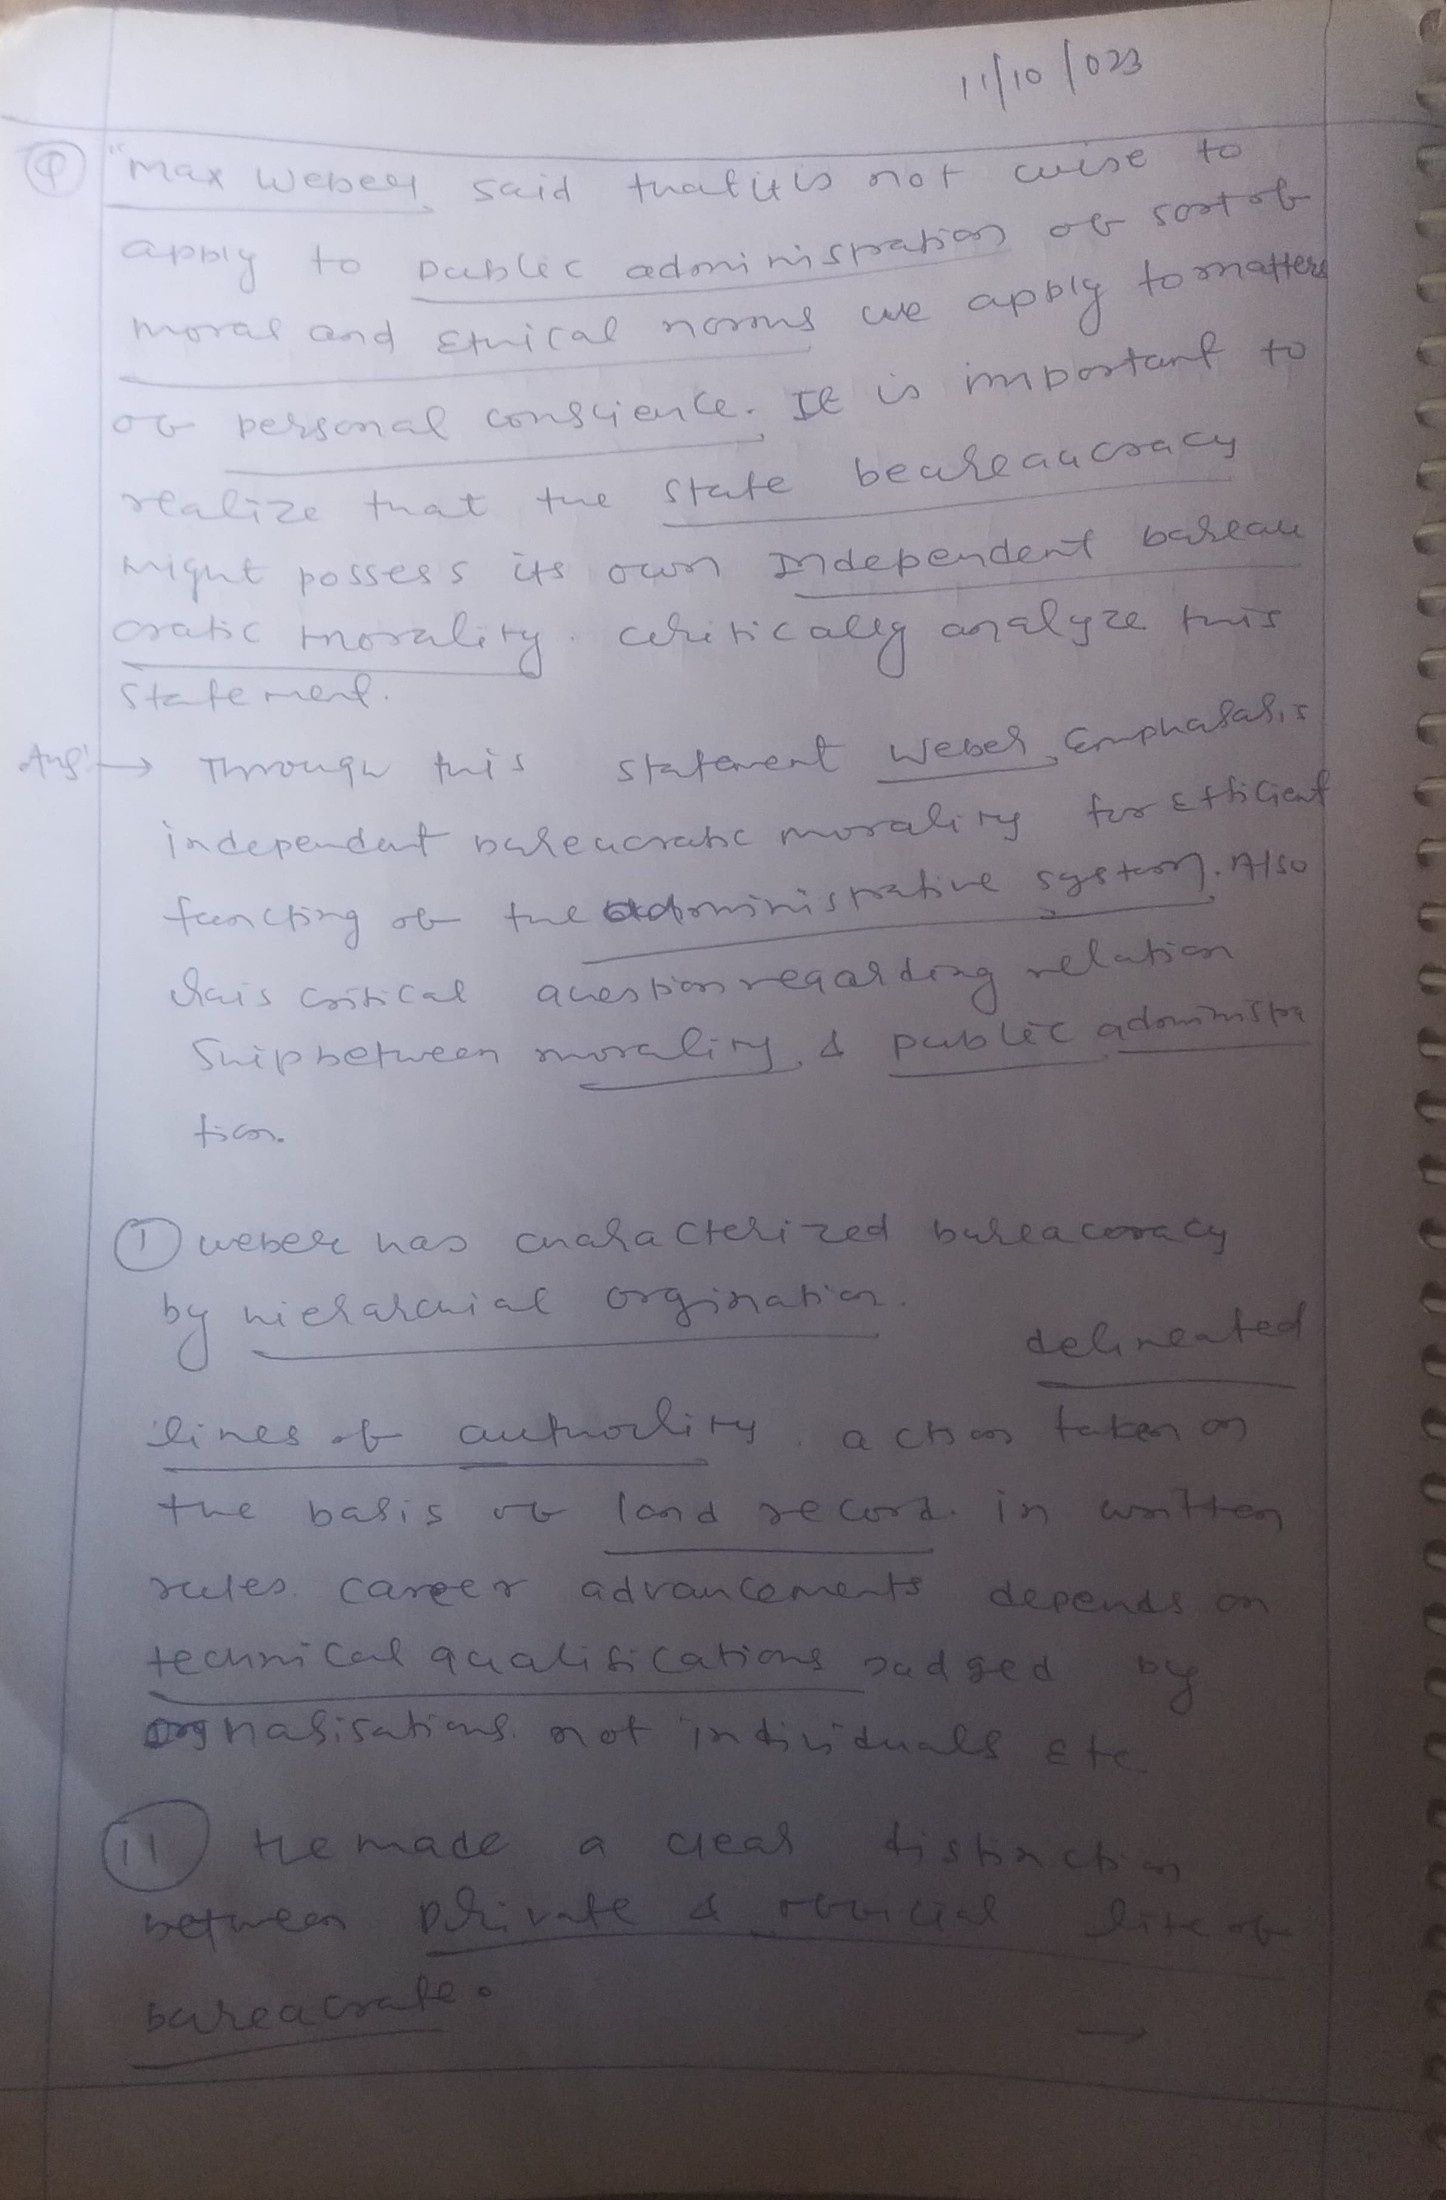 11/10/023
Q "Max Weber said that it is not wise to
apply to public administration of sort of
moral and Ethical norms we apply to matters
of personal conscience. It is important to
realize that the state beaureaucracy
might possess its own Independent bureau
cratic morality. critically analyze this
statement.
Ans → Through this statement Weber, Emphasasis
independent bureacratic morality for Efficient
functing of the administrative system. Also
rais critical question regarding relation
Ship between morality & public administra
tion.
I weber has characterized bureacoracy
by hierarchial orgination.
delineated
lines of authority. action taken on
the basis of land record. in written
rules. career advancements depends on
technical qualifications judged by
orgnasisations. not individuals Etc
II He made a clear distinction
between private & official life of
bureacrate.
→